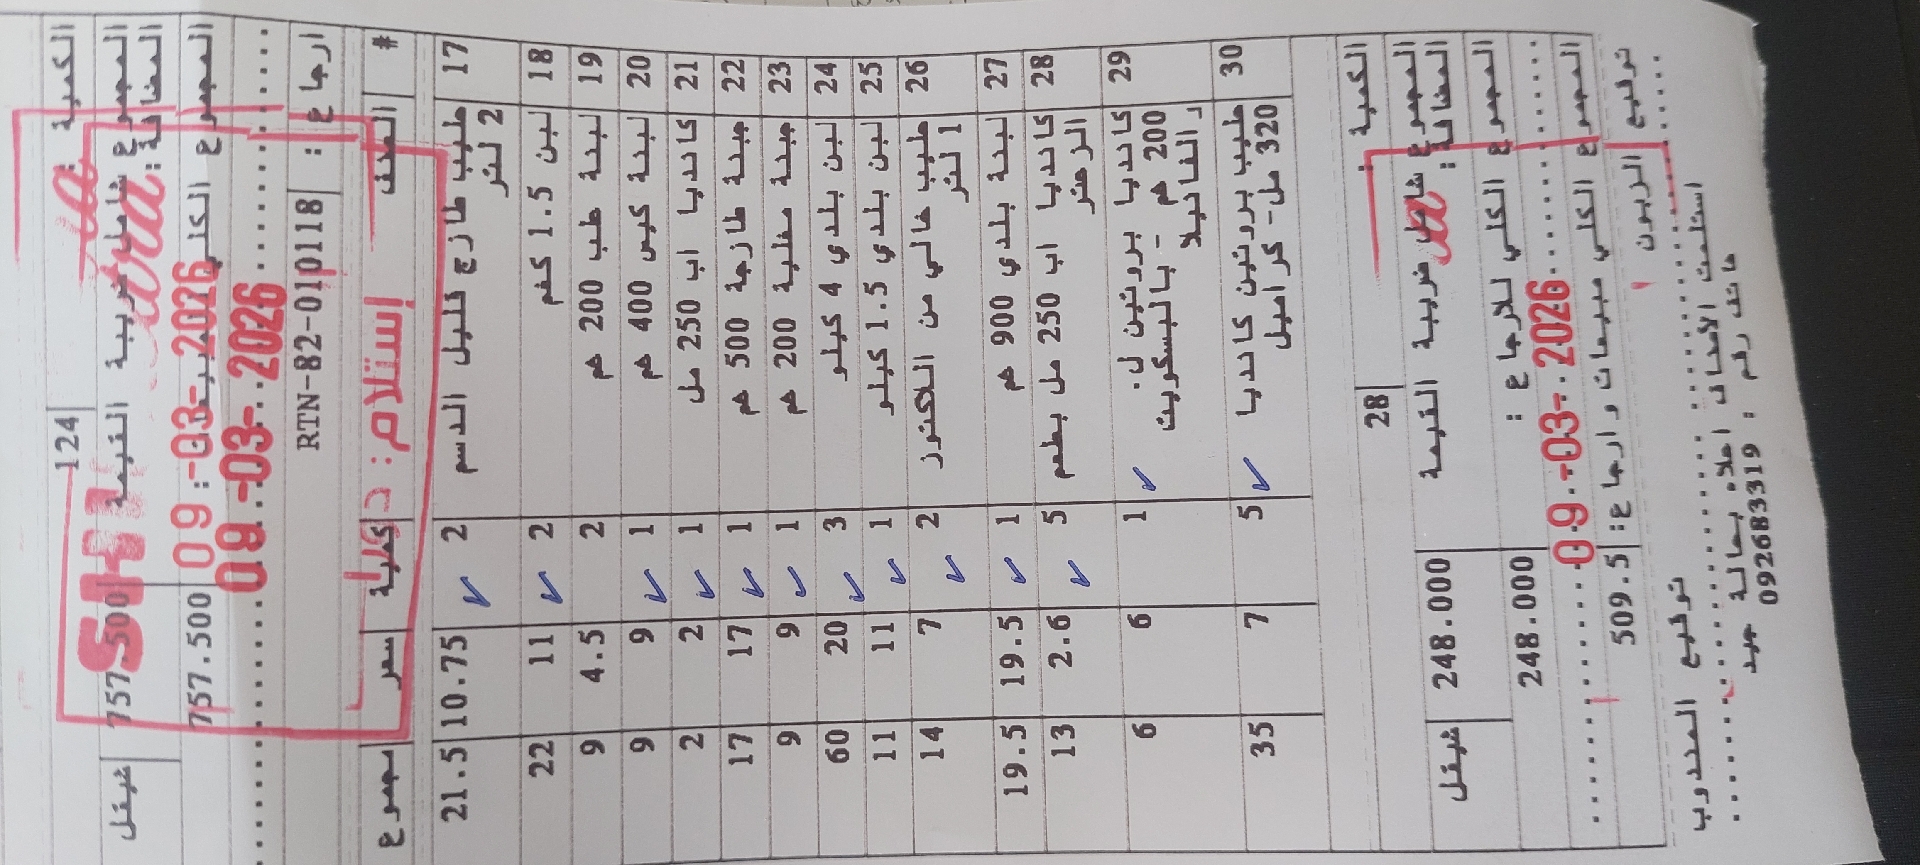 الكمية : 124
المجموع شامل ضريبة القيمة المضافة: 757.500 شيقل
المجموع الكلي 757.500
SH
09-03-2026
09-03-2026
إستلام:
ارجاع : RTN-82-010118
# الصنف كمية سعر مجموع
17 حليب طازج كليل الدسم 2 لتر 2 10.75 21.5
18 لبن 1.5 كغم 2 11 22
19 لبنة طب 200 هم 2 4.5 9
20 لبنة كيس 400 هم 1 9 9
21 كانديا اب 250 مل 1 2 2
22 جبنة طازجة 500 هم 1 17 17
23 جبنة مغلية 200 هم 1 9 9
24 لبن بلدي 4 كيلو 3 20 60
25 لبن بلدي 1.5 كيلو 1 11 11
26 حليب خالي من اللاكتوز 1 لتر 2 7 14
27 لبنة بلدي 900 هم 1 19.5 19.5
28 كانديا اب 250 مل بطعم 5 2.6 13
29 كانديا بروتين ل. 200 هم - بالبسكويت و الفانيلا 1 6 6
30 حليب بروتين كانديا 320 مل- كراميل 5 7 35
الكمية : 28
المجموع شامل ضريبة القيمة المضافة: 248.000 شيقل
المجموع الكلي للارجاع : 248.000
09-03-2026
المجموع الكلي مبيعات وارجاع: 509.5
توقيع الزبون توقيع المندوب
استلمت الأصناف اعلاه بحالة جيد
هاتف رقم : 092683319